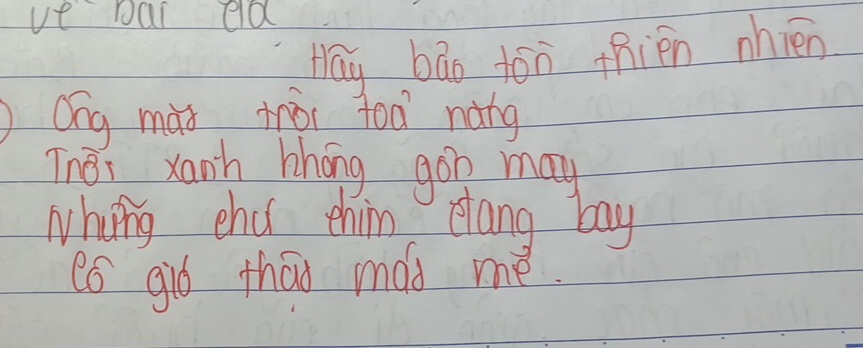 vẽ bài
Hãy bảo tồn thiên nhiên
Ông mặt trời toả nắng
Trời xanh không gợn mây
Những chú chim đang bay
Có gió thật mát mẻ.